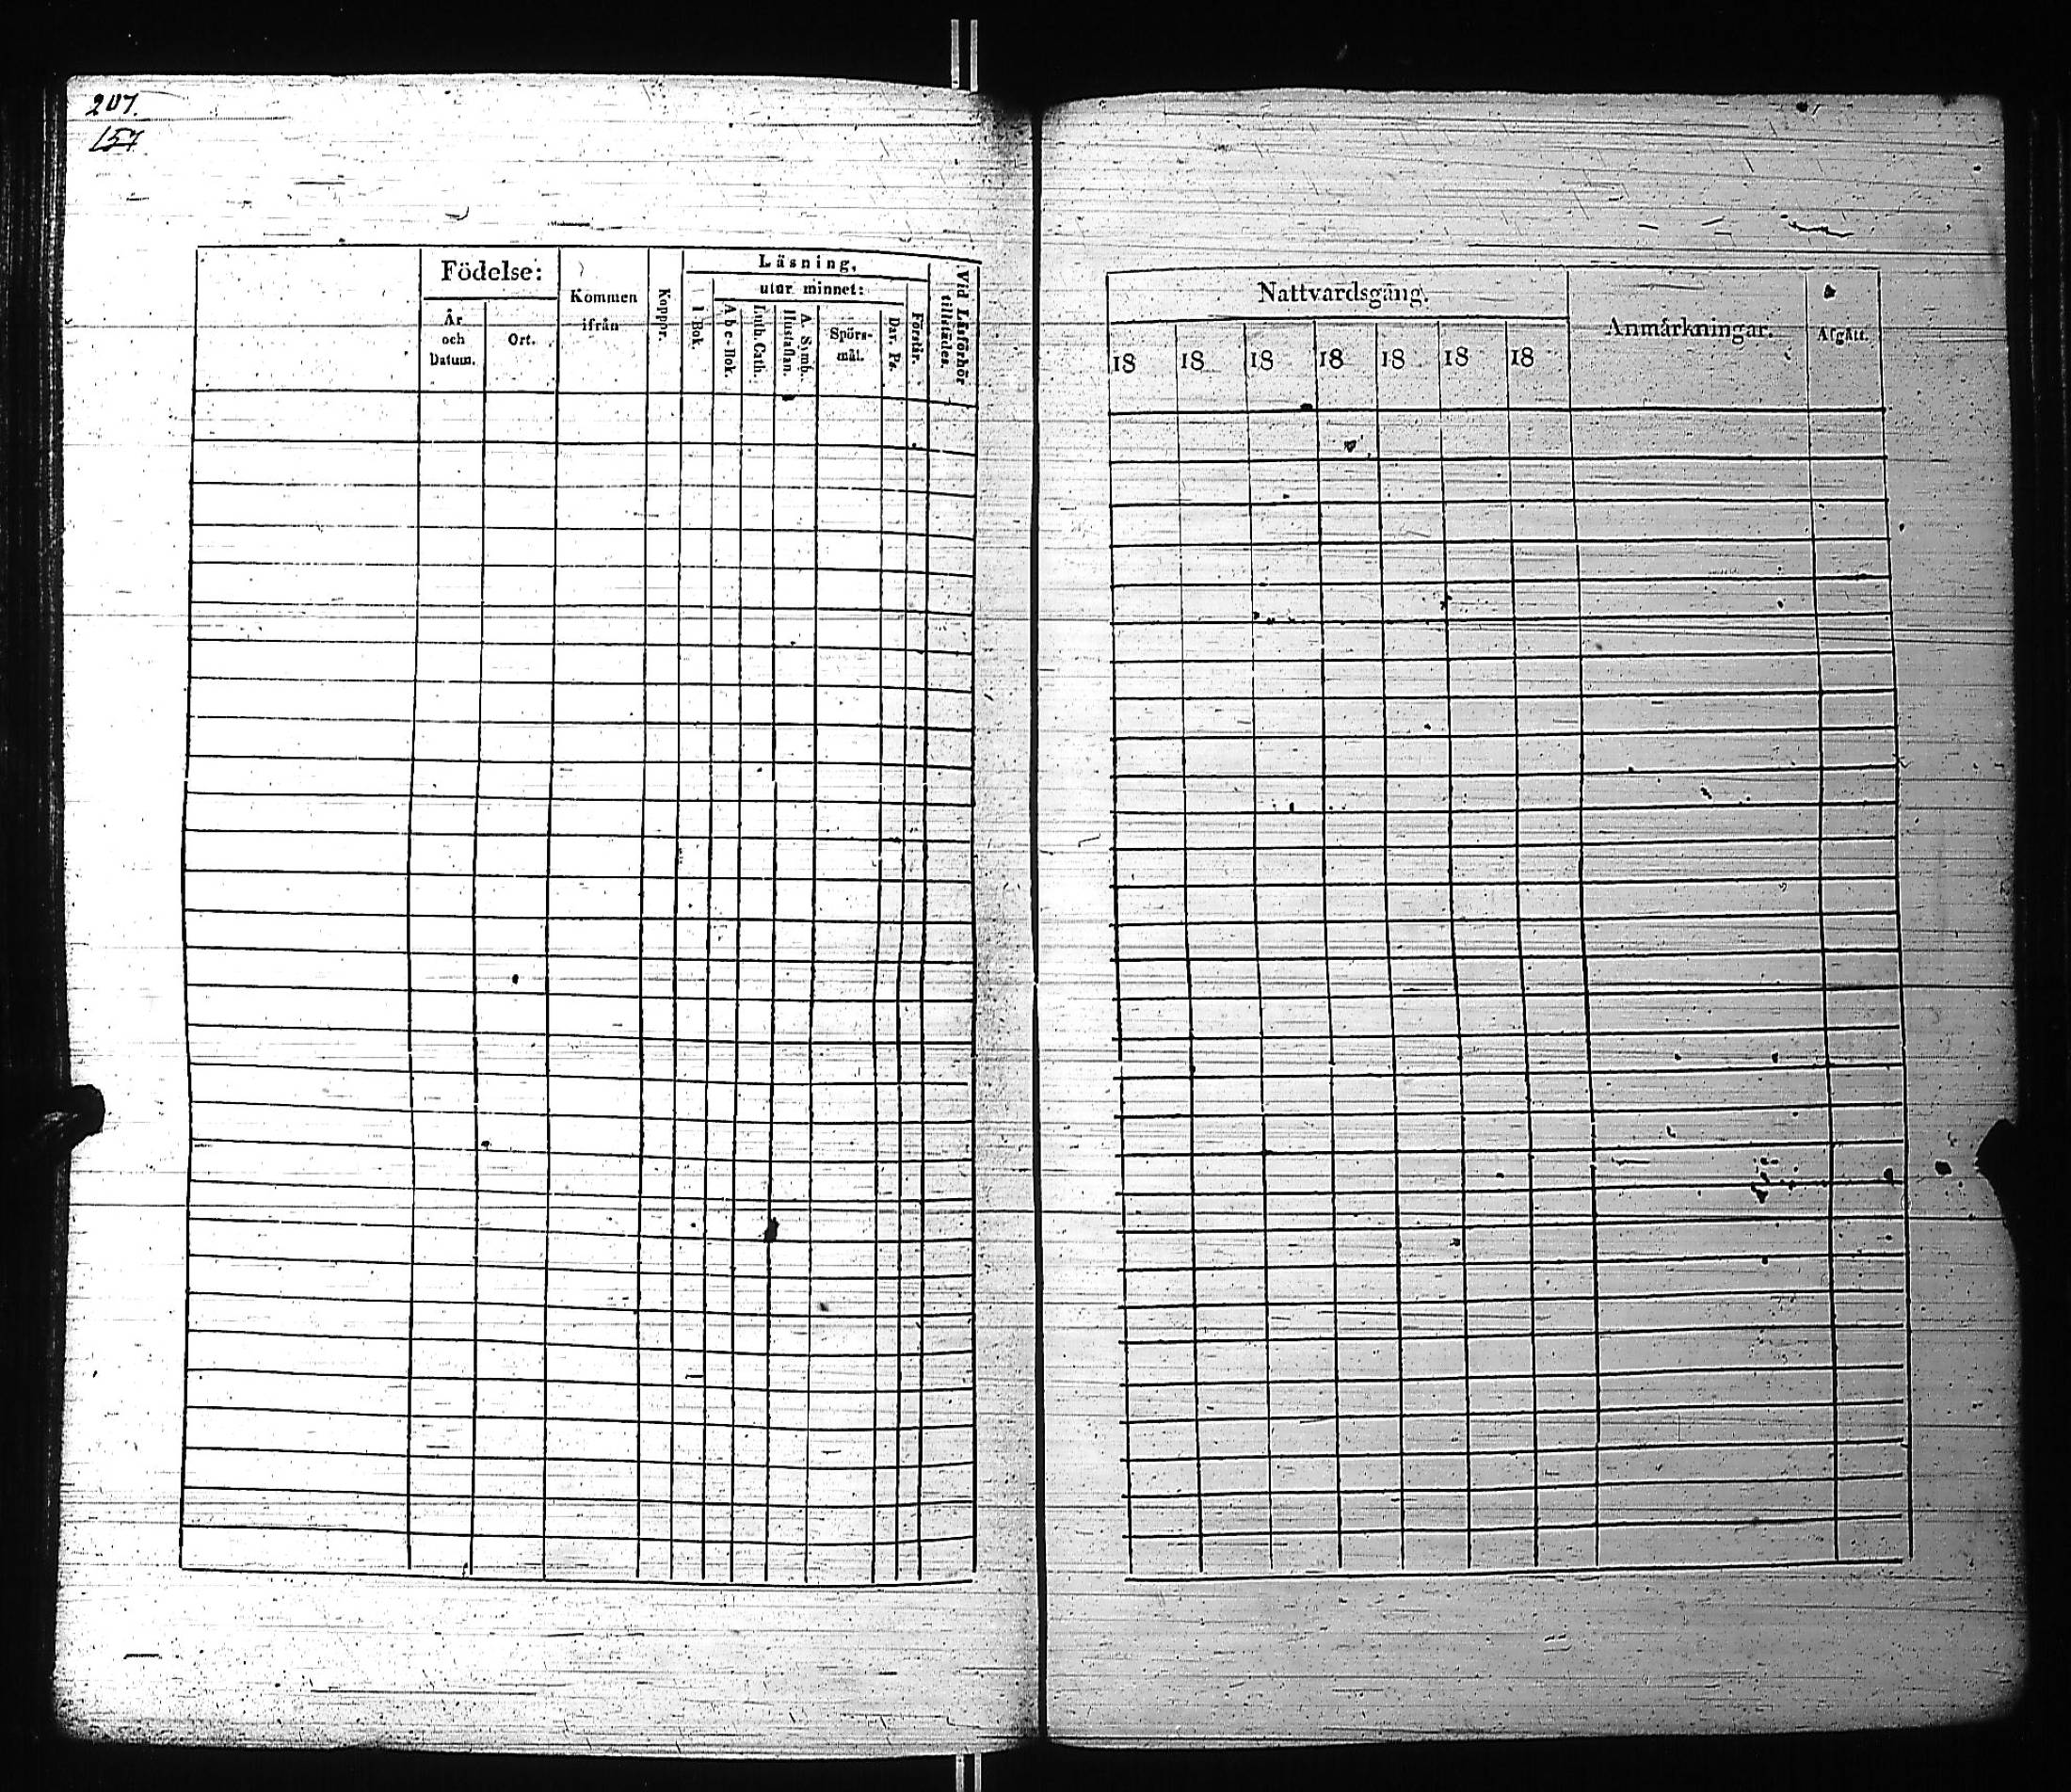 207.
157
Födelse:
År
och
Datum.
Ort.
Kommen
ifrån
Koppor.
Läsning,
utur minnet:
I Bok.
Abc-Bok.
Luth. Cath.
Hustaflan.
A. Symb.
Spörs-
mål.
Dav. Ps.
Förstår.
Vid Läsförhör
tillstädes.
Nattvardsgång.
18 18 18 18 18 18 18
Anmärkningar.
Afgått.